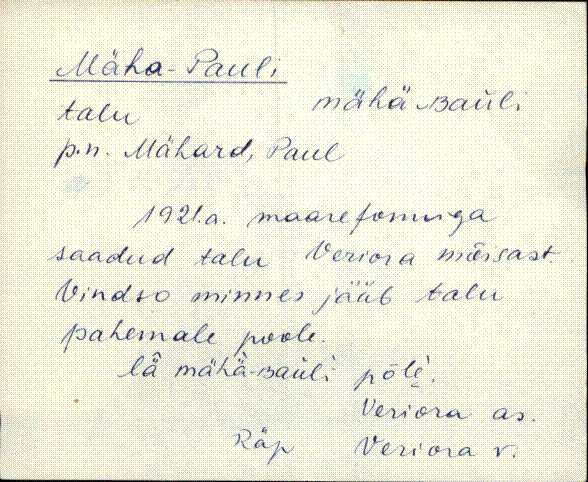 Mäha-Pauli
mähä ʙaůli
talu
p.n. Mähard, Paul
1921.a. maareformiga
saadud talu Veriora mõisast.
Vindso minnes jääb talu
pahemale poole.
lä mähä-ʙaůli põle.
Veriora as.
Räp Veriora v.